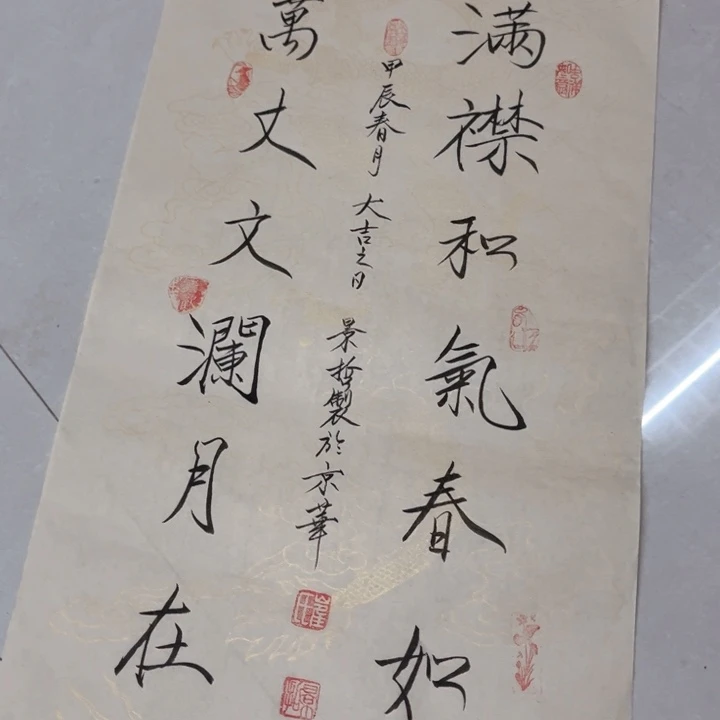 滿襟和氣春如
甲辰春月 大吉之日 景哲製於京華
萬丈文瀾月在